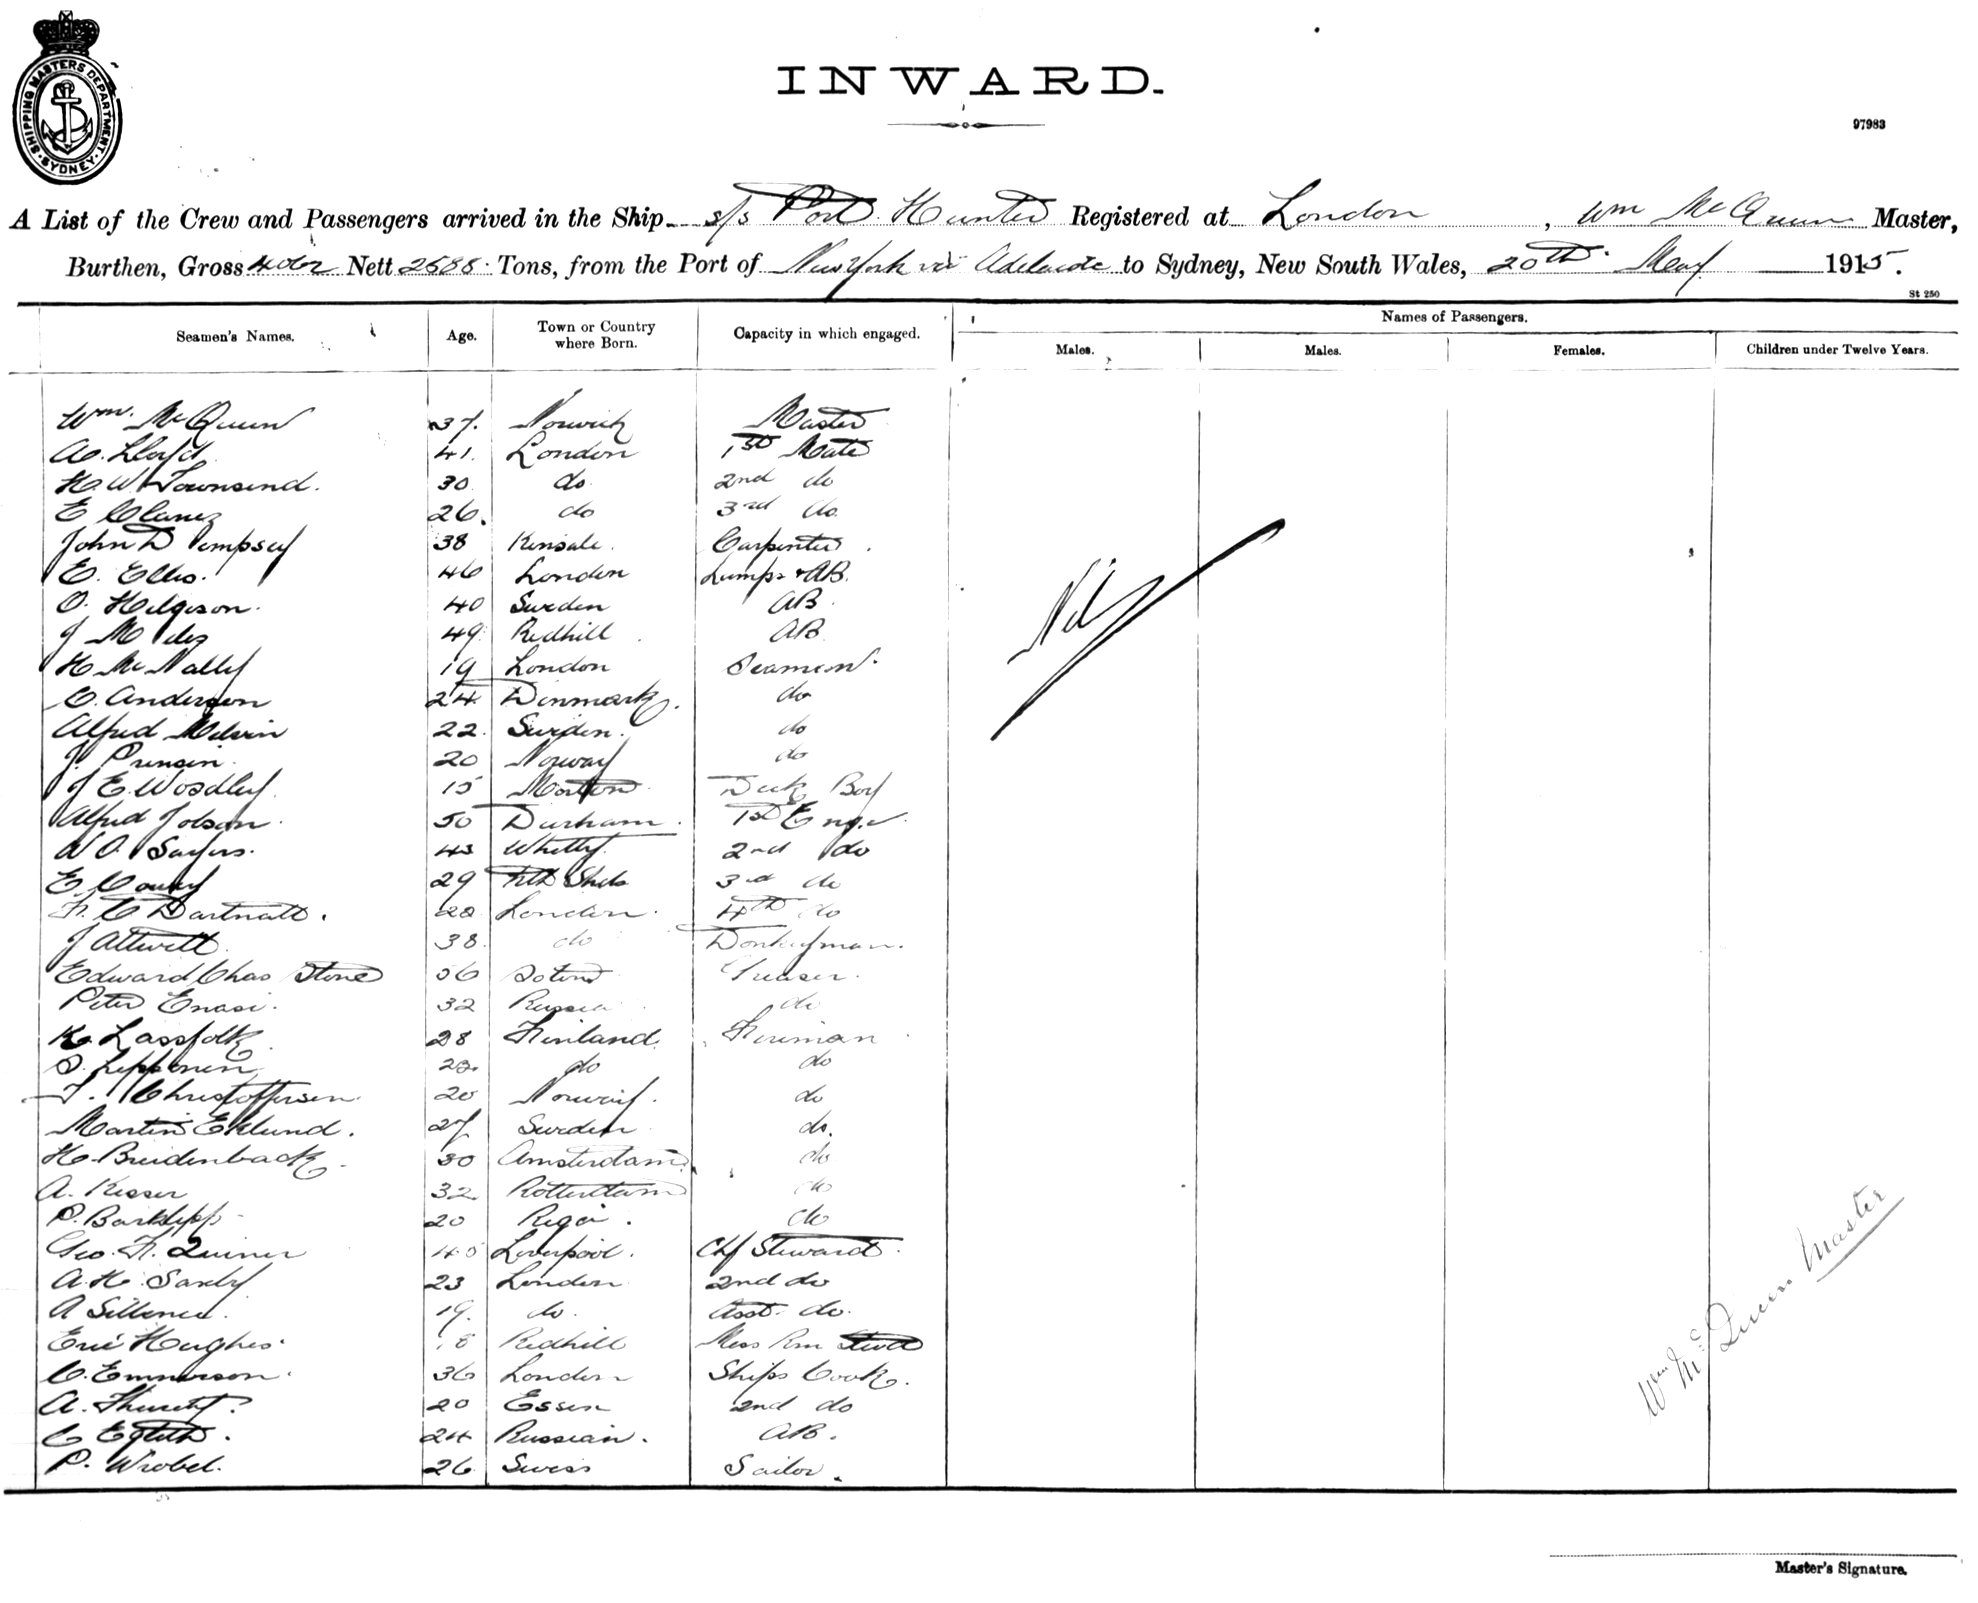 SHIPPING MASTERS DEPARTMENT SYDNEY
INWARD.
97983
A List of the Crew and Passengers arrived in the Ship s/s Port Hunter Registered at London, Wm McQueen Master,
Burthen, Gross Nett 2588 Tons, from the Port of New York via Adelaide to Sydney, New South Wales, 20th May 1915.
St 250
Seamen's Names. Age. Town or Country where Born. Capacity in which engaged. Names of Passengers.
Males. Males. Females. Children under Twelve Years.
Wm. McQueen 37. Norwich Master
A. Lloyd 41. London 1st Mate
H W Townsend. 30 do 2nd do
E 26. do 3rd do
John Dempsey 38 Kinsale. Carpenter
E. Ellis. 46 London Lamps + AB.
O. Helgeson. 40 Sweden AB
J 49 Redhill AB
H McNally 19 London Seaman.
C. Anderson 24 Denmark. do
Alfred Melvin 22. Sweden. do
J. 20 Norway do
J E Woodley 15 Deck Boy
Alfred Jobson. 50 Durham. 1st Engr.
Sayers. 43 Whitby. 2nd do
E. 29 Nth Shds 3rd do
F. C Dartnall. London. 4th do
J Attwell 38. do Donkeyman.
Edward Chas Stone 56 Soton Greaser.
Peter Enasi. 32 Russia do
K. Lassfolk 28 Finland. Fireman
S. Lepponen do do
T. Christoffersen. 20 Norway. do
Martin Eklund. 27 Sweden do.
H. Breidenback 30 Amsterdam do
A. Kisser 32. Rotterdam do
P. 20 Riga. do
Geo. F. Quiner Liverpool. Chf Steward.
A. H. Saxby 23 London 2nd do
A Sillence. 19. do. Asst. do.
Eric Hughes. 18 Redhill Mess Rm Stwd
C. Emmerson. 36 London Ships Cook.
A. 20 Essen 2nd do
C 24 Russian. AB.
P. Wrobel. 26 Swiss Sailor.
Nil
Wm McQueen Master
Master's Signature.